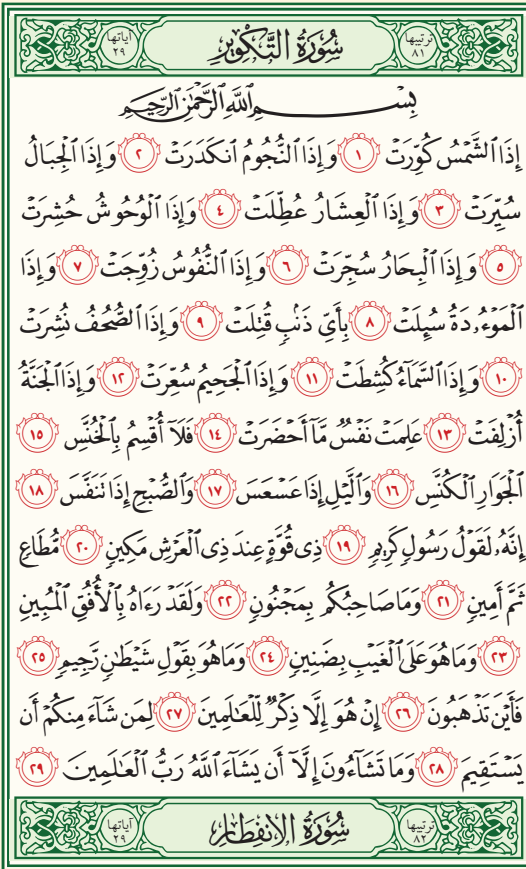 ترتيبها ٨١ سُورَةُ التَّكْوِيرِ آياتها ٢٩
بِسْمِ اللَّهِ الرَّحْمَٰنِ الرَّحِيمِ
إِذَا ٱلشَّمْسُ كُوِّرَتْ ١ وَإِذَا ٱلنُّجُومُ ٱنكَدَرَتْ ٢ وَإِذَا ٱلْجِبَالُ
سُيِّرَتْ ٣ وَإِذَا ٱلْعِشَارُ عُطِّلَتْ ٤ وَإِذَا ٱلْوُحُوشُ حُشِرَتْ
٥ وَإِذَا ٱلْبِحَارُ سُجِّرَتْ ٦ وَإِذَا ٱلنُّفُوسُ زُوِّجَتْ ٧ وَإِذَا
ٱلْمَوْءُۥدَةُ سُئِلَتْ ٨ بِأَيِّ ذَنۢبٍ قُتِلَتْ ٩ وَإِذَا ٱلصُّحُفُ نُشِرَتْ
١٠ وَإِذَا ٱلسَّمَآءُ كُشِطَتْ ١١ وَإِذَا ٱلْجَحِيمُ سُعِّرَتْ ١٢ وَإِذَا ٱلْجَنَّةُ
أُزْلِفَتْ ١٣ عَلِمَتْ نَفْسٌ مَّآ أَحْضَرَتْ ١٤ فَلَآ أُقْسِمُ بِٱلْخُنَّسِ ١٥
ٱلْجَوَارِ ٱلْكُنَّسِ ١٦ وَٱلَّيْلِ إِذَا عَسْعَسَ ١٧ وَٱلصُّبْحِ إِذَا تَنَفَّسَ ١٨
إِنَّهُۥ لَقَوْلُ رَسُولٍ كَرِيمٍ ١٩ ذِى قُوَّةٍ عِندَ ذِى ٱلْعَرْشِ مَكِينٍ ٢٠ مُّطَاعٍ
ثَمَّ أَمِينٍ ٢١ وَمَا صَاحِبُكُم بِمَجْنُونٍ ٢٢ وَلَقَدْ رَءَاهُ بِٱلْأُفُقِ ٱلْمُبِينِ
٢٣ وَمَا هُوَ عَلَى ٱلْغَيْبِ بِضَنِينٍ ٢٤ وَمَا هُوَ بِقَوْلِ شَيْطَٰنٍ رَّجِيمٍ ٢٥
فَأَيْنَ تَذْهَبُونَ ٢٦ إِنْ هُوَ إِلَّا ذِكْرٌ لِّلْعَٰلَمِينَ ٢٧ لِمَن شَآءَ مِنكُمْ أَن
يَسْتَقِيمَ ٢٨ وَمَا تَشَآءُونَ إِلَّآ أَن يَشَآءَ ٱللَّهُ رَبُّ ٱلْعَٰلَمِينَ ٢٩
ترتيبها ٨٢ سُورَةُ الانفِطَارِ آياتها ٢٩